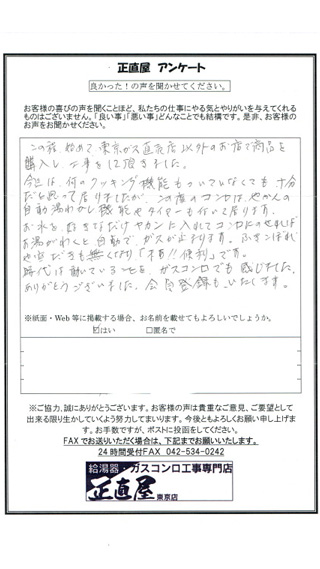 正直屋 アンケート
良かった！の声を聞かせてください。
お客様の喜びの声を聞くことほど、私たちの仕事にやる気とやりがいを与えてくれる
ものはございません。「良い事」「悪い事」どんなことでも結構です。是非、お客様の
お声をお聞かせください。
この程、始めて東京ガス直売店以外のお店で商品を
購入し、工事をして頂きました。
今迄は、何のクッキング機能もついていなくても十分
だと思って居りましたが、この度のコンロは、やかんの
自動湯わかし機能やタイマーも付いて居ります。
お水を好きなだけヤカンに入れてコンロにのせれば
お湯がわくと自動で、ガスが止まります。ふきこぼれ
や空だきも無くなり「本当!! 便利」です。
時代は動いていることを、ガスコンロでも感じました。
ありがとうございました。会員登録も、いたします。
※紙面・Web 等に掲載する場合、お名前を載せてもよろしいでしょうか。
☑はい □匿名で
※ご協力、誠にありがとうございます。お客様の声は貴重なご意見、ご要望として
出来る限り生かしていくよう努力してまいります。今後ともよろしくお願い申し上げま
す。お手数ですが、ポストに投函をしてください。
FAXでお送りいただく場合は、下記までお願いいたします。
24時間受付FAX 042-534-0242
給湯器・ガスコンロ工事専門店
正直屋 東京店